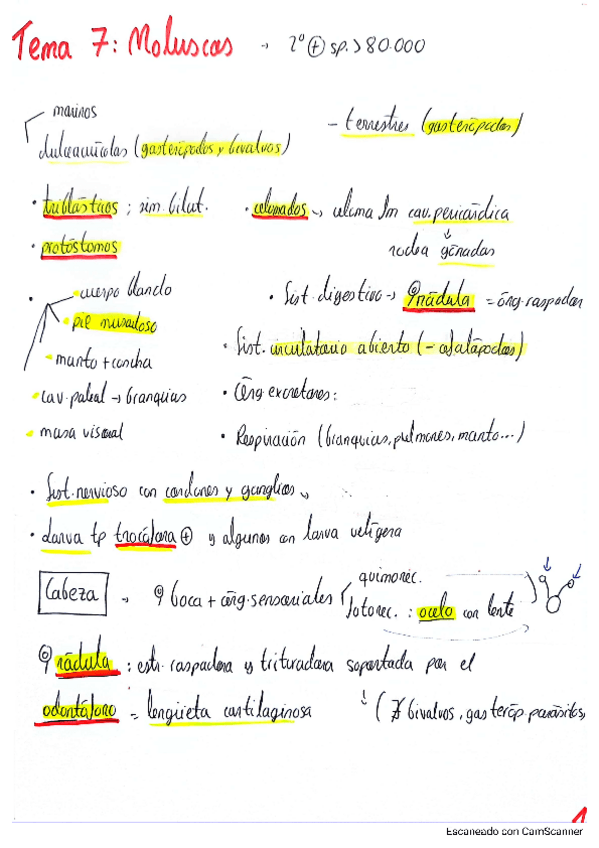 Tema 7: Moluscos → 2º ⊕ sp. > 80.000
marinos
dulceacuícolas (gasterópodos y bivalvos)
- terrestres (gasterópodos)
• triblásticos ; sim. bilat.
• celomados → celoma lm cav. pericárdica
↓
rodea gónadas
• protóstomos
• cuerpo blando
• piel musculoso
• manto + concha
• cav. paleal → branquias
• masa visceral
• Sist. digestivo → rádula = órg. raspador
• Sist. circulatorio abierto (- cefalópodos)
• Órg excretores:
• Respiración (branquias, pulmones, manto...)
• Sist. nervioso con cordones y ganglios
• Larva tp trocófora ⊕ y algunos con larva velígera
Cabeza → boca + órg. sensoriales
quimiorec.
fotorec. : ocelo con lente
rádula : estr. raspadora y trituradora soportada por el
odontóforo = lengüeta cartilaginosa ↓ (∄ bivalvos, gasteróp. parásitos,
1
Escaneado con CamScanner